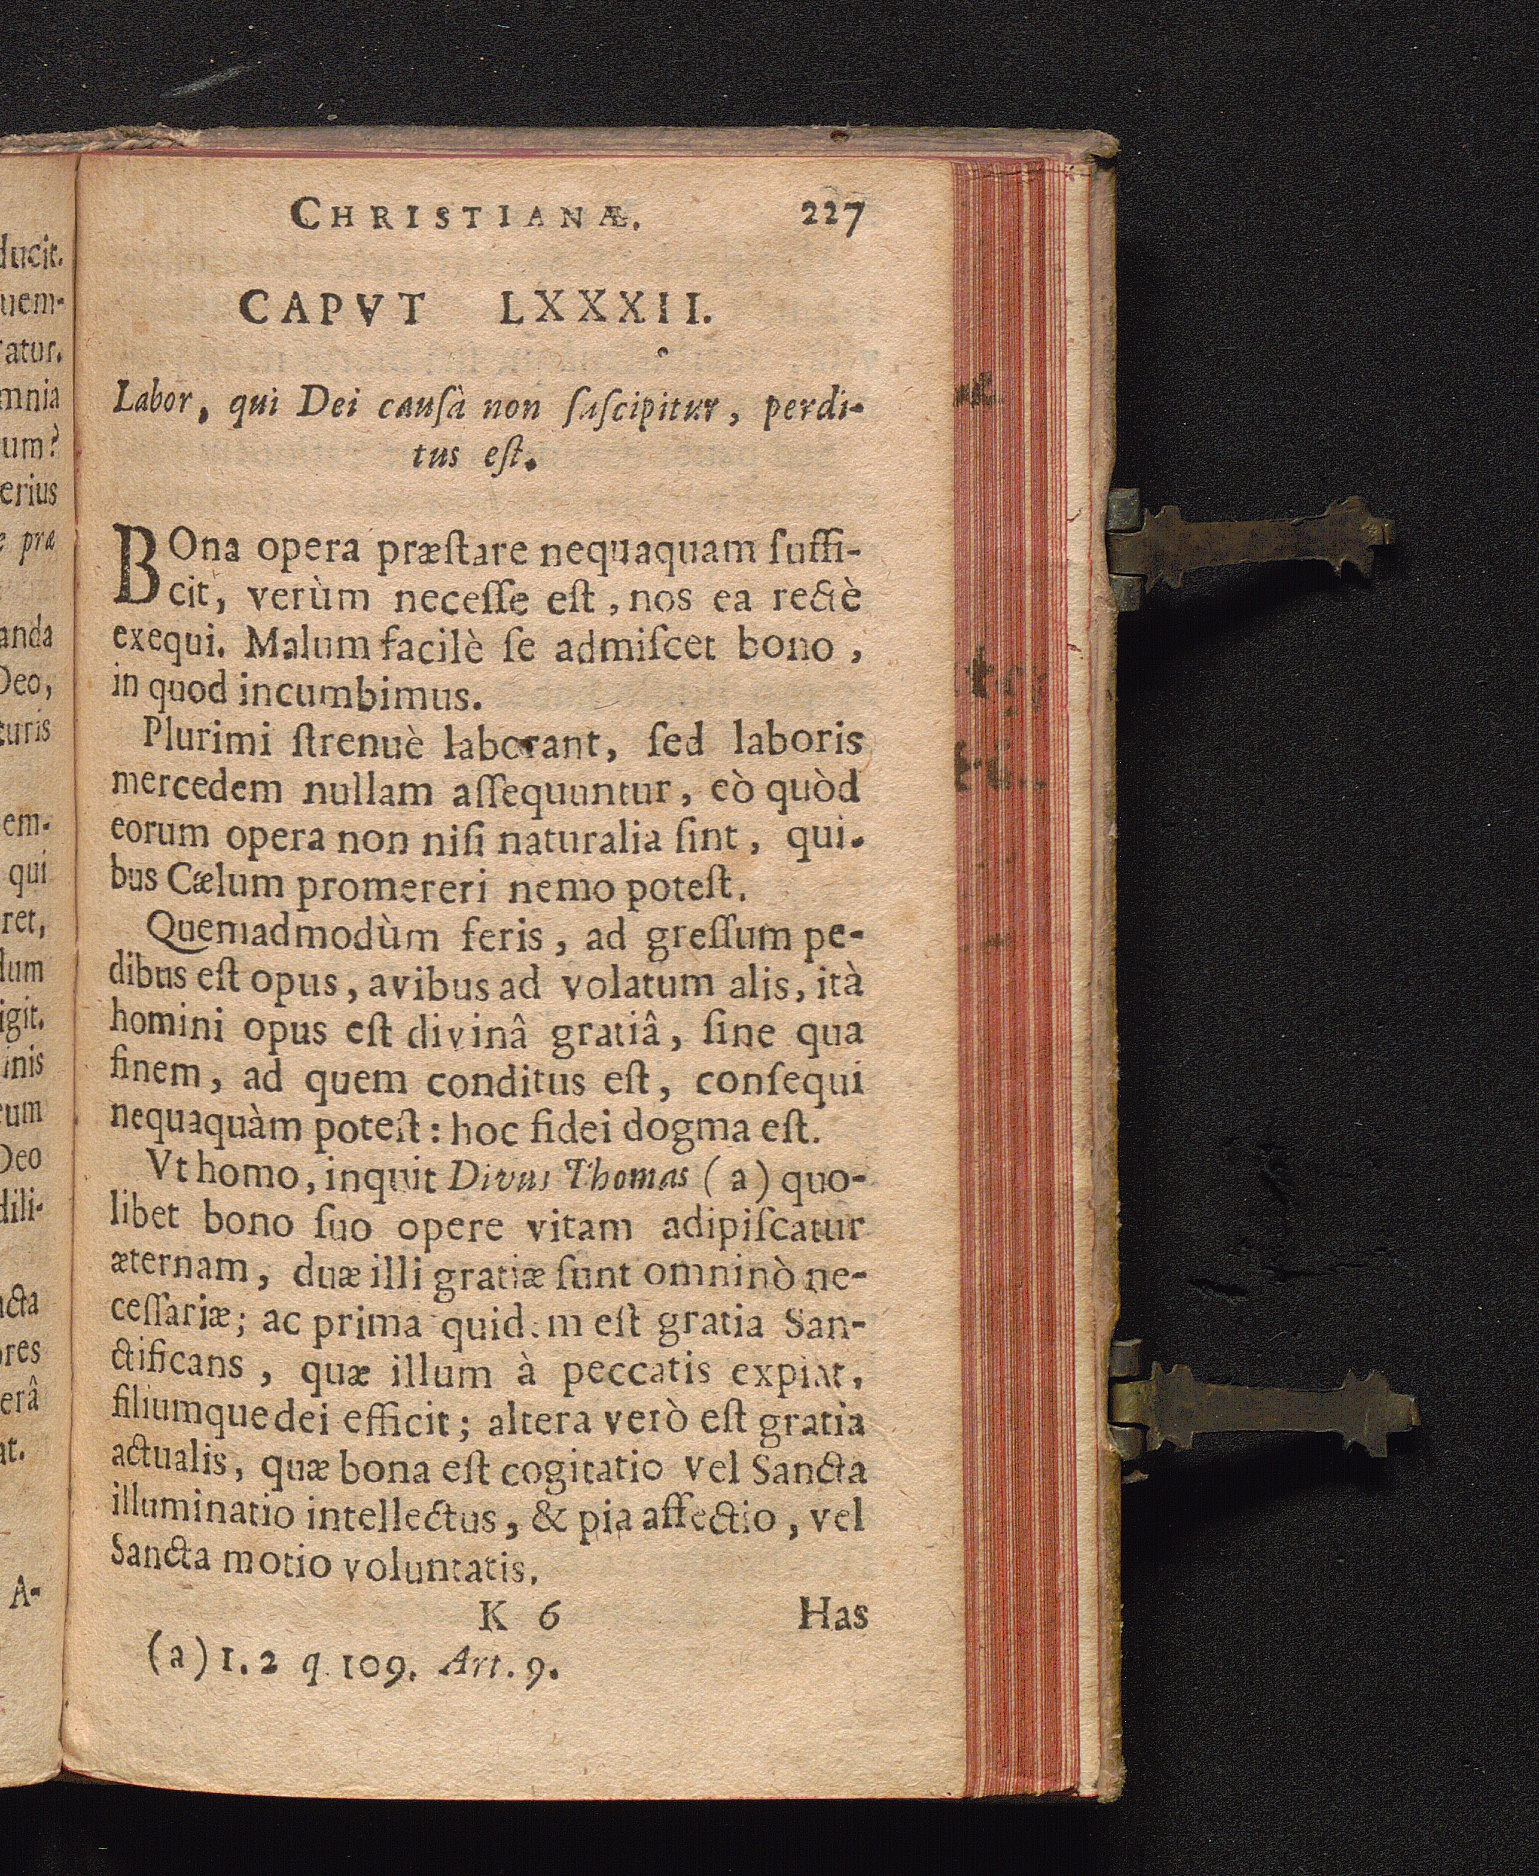 CHRISTIANÆ. 227
CAPVT LXXXII.
Labor, qui Dei causâ non sascipitur, perdi-
tus est.
BOna opera præstare nequaquam suffi-
cit, verùm necesse est, nos ea rectè
exequi. Malum facilè se admiscet bono,
in quod incumbimus.
Plurimi strenuè laborant, sed laboris
mercedem nullam assequuntur, eò quòd
eorum opera non nisi naturalia sint, qui-
bus Cælum promereri nemo potest.
Quemadmodùm feris, ad gressum pe-
dibus est opus, avibus ad volatum alis, ità
homini opus est divinâ gratiâ, sine qua
finem, ad quem conditus est, consequi
nequaquàm potest: hoc fidei dogma est.
Vt homo, inquit Divus Thomas (a) quo-
libet bono suo opere vitam adipiscatur
æternam, duæ illi gratiæ sunt omninò ne-
cessariæ; ac prima quidem est gratia San-
ctificans, quæ illum à peccatis expiat,
filiumque dei efficit; altera verò est gratia
actualis, quæ bona est cogitatio vel Sancta
illuminatio intellectus, & pia affectio, vel
Sancta motio voluntatis.
K 6 Has
(a) 1. 2 q. 109. Art. 9.